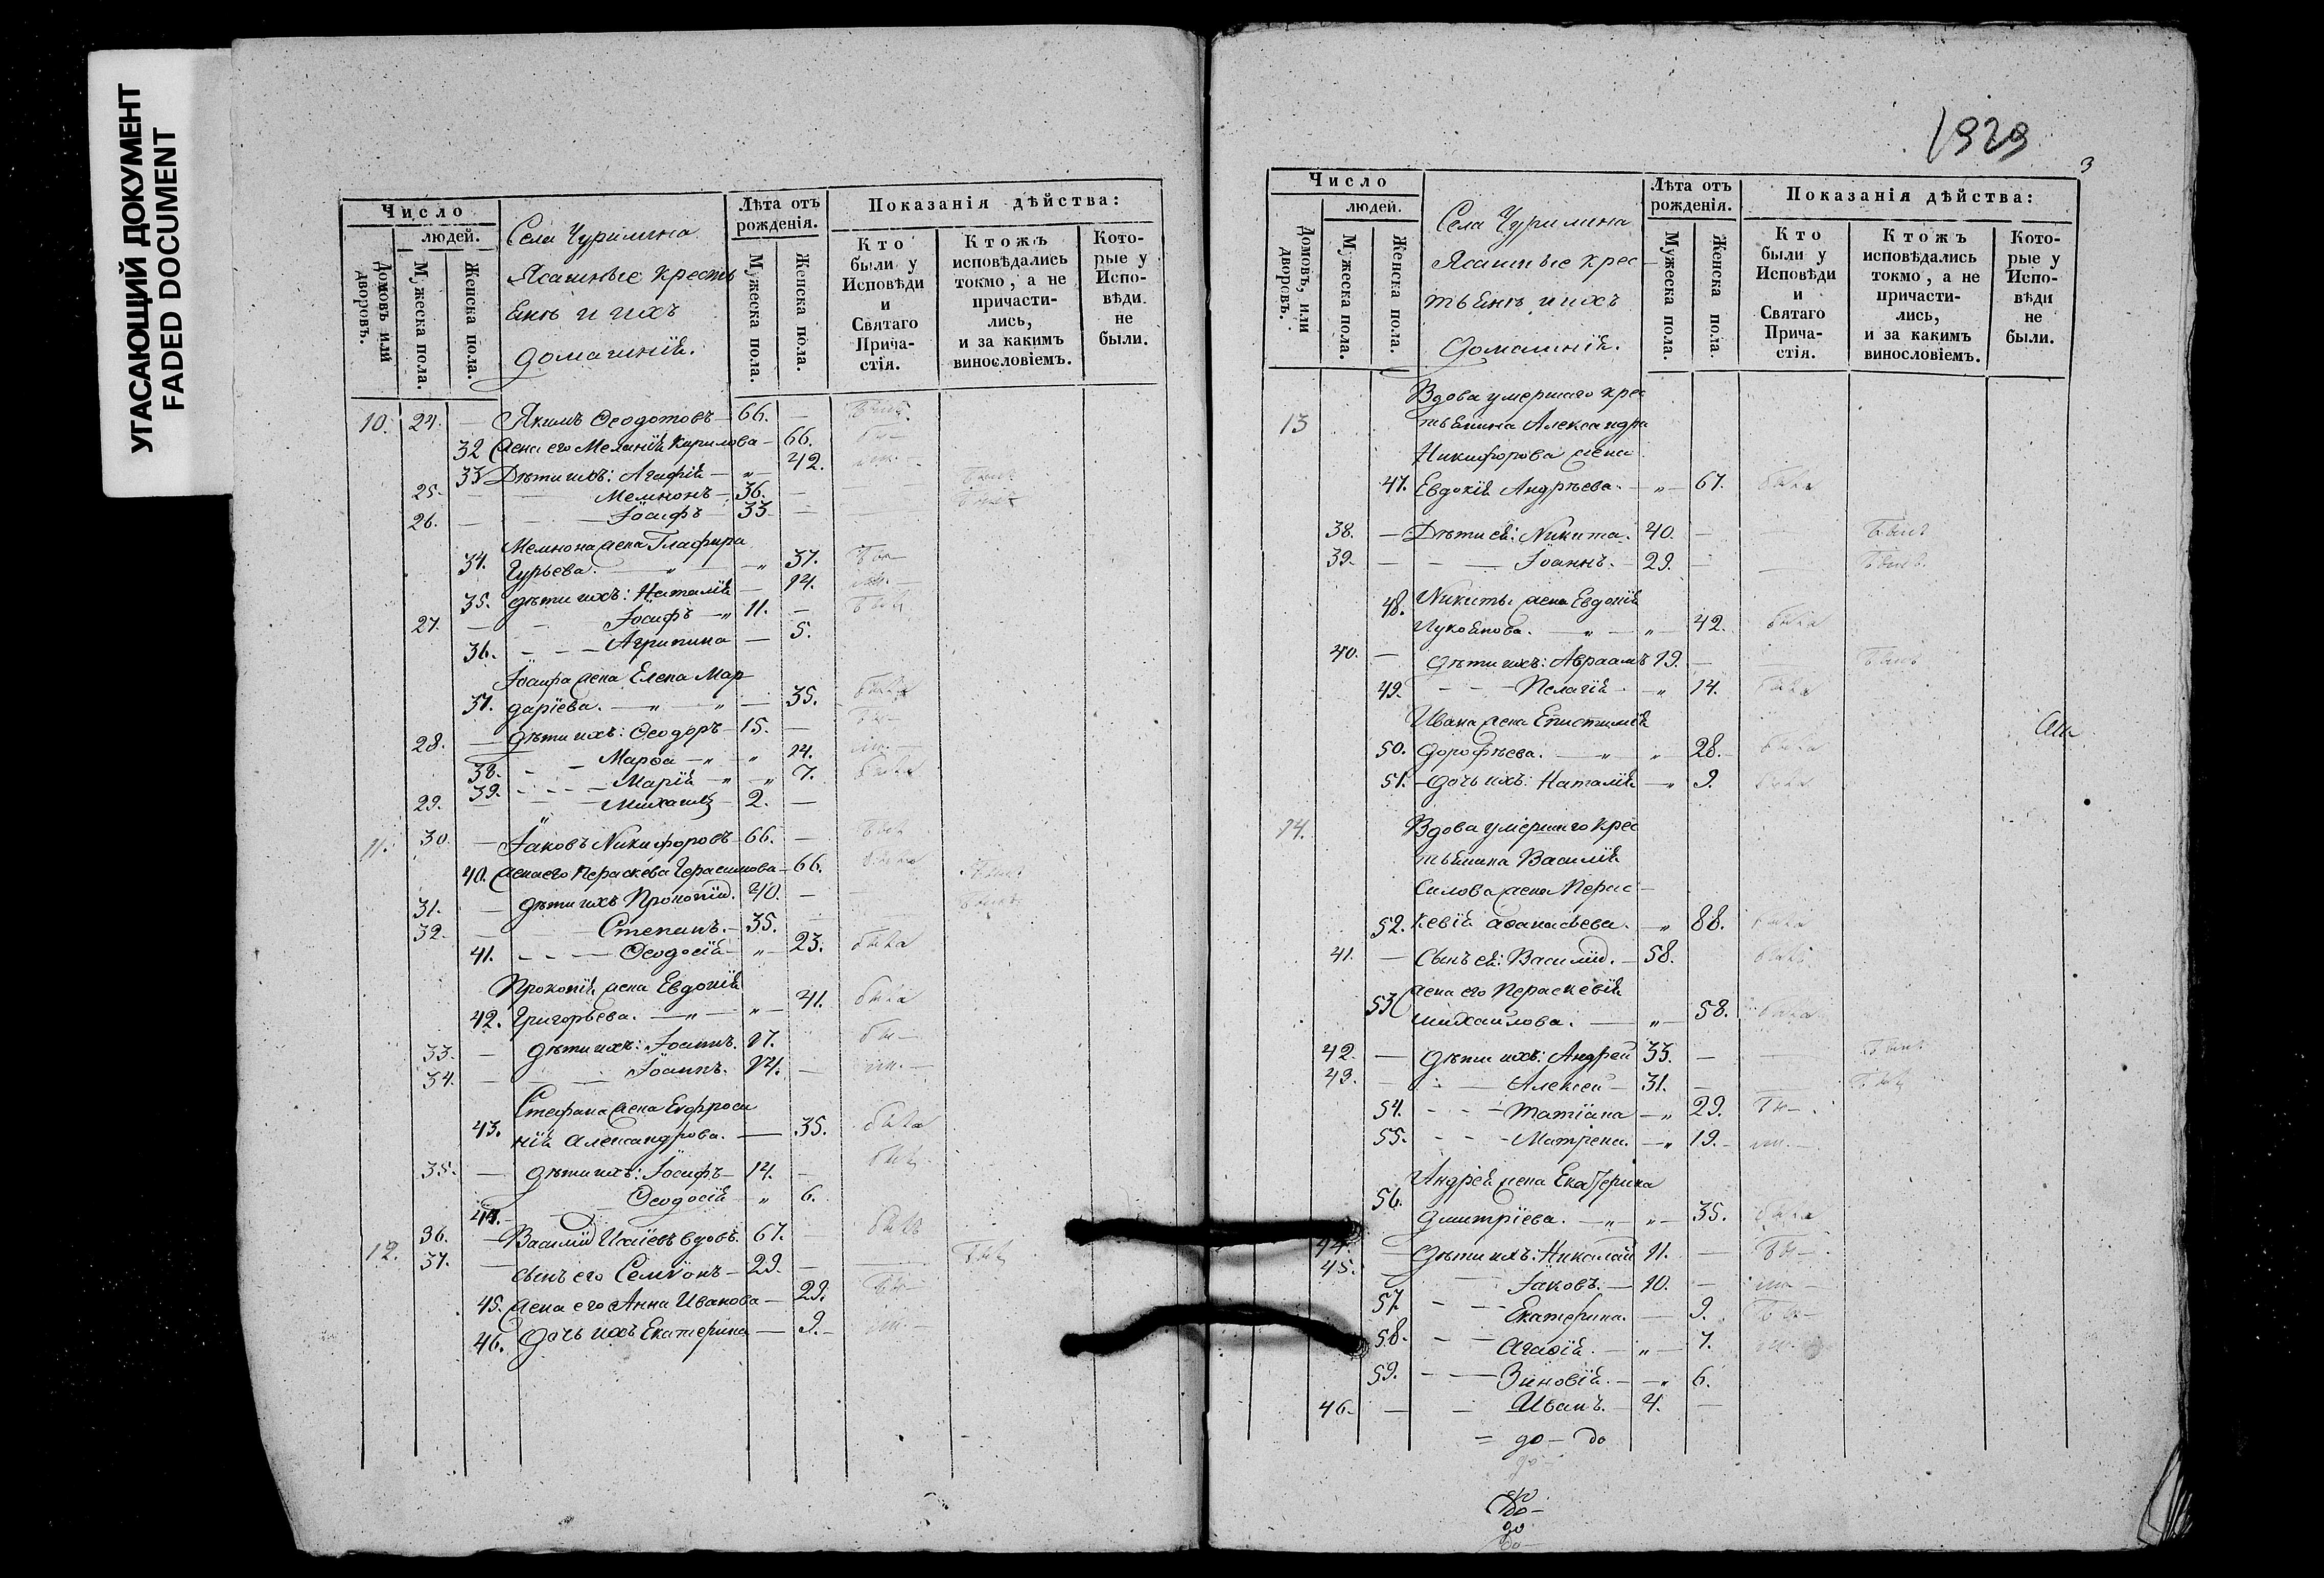 УГАСАЮЩИЙ ДОКУМЕНТ
FADED DOCUMENT
Число
людей.
Домовъ или дворовъ.
Мужеска пола.
Женска пола.
Села Чурилина
Ясашные кресть
яне и ихъ
домашнія.
Лѣта отъ рожденія.
Мужеска пола.
Женска пола.
Показанія дѣйства:
Кто были у Исповѣди и Святаго Прича-стія.
Ктожъ исповѣдались токмо, а не причасти-лись, и за какимъ винословіемъ.
Кото-рые у Испо-вѣди не были.
10. 24. — Якимъ Ѳеодотовъ — 66. —
32 жена его Меланія Кирилова — 66.
33 Дѣти ихъ: Агафія — „ — 42.
25. Мемнонъ — 36. —
26. — Іосифъ — 33 —
Мемнона жена Глафира
34. Гурьева. — „ — „ 37.
35. дѣти ихъ: Наталія — 14.
27. — Іосифъ — „ 11. —
36. — Агрипина — 5.
Іосифа жена Елена Мар
37. даріева. — „ — „ — 35. была
28. — дѣти ихъ: Ѳеодоръ — 15. —
38. — Марѳа — „ — „ 14.
39. — Марія — „ — „ 7.
29. — Михаилъ — 2. —
11. 30. — Іаковъ Никифоровъ — 66. —
40. жена его Пераскева Герасимова — 66.
31. — дѣти ихъ Прокопій. 40. —
32. — Степанъ. — 35.
41. — Ѳеодосія — „ — 23. была
Прокопія жена Евдокія
42. Григорьева. — „ — „ — 41. была
33. — дѣти ихъ: Іоаннъ. 17.
34. — Іоаннъ. 14. —
Стефана жена Евфроси
43. нія Александрова. — 35. была
35. — дѣти ихъ: Іосифъ — 14. —
44. — Ѳеодосія — „ 6.
12. 36. — Василій Исаіевъ вдовъ. 67. —
37. — сынъ его Семіонъ — 29. —
45. жена его Анна Иванова — 29.
46. дочь ихъ Екатерина — 9. —
1929
3
Число
людей.
Домовъ, или дворовъ.
Мужеска пола.
Женска пола.
Села Чурилина
Ясашные крес
тьяне и ихъ
домашнія.
Лѣта отъ рожденія.
Мужеска пола.
Женска пола.
Показанія дѣйства:
Кто были у Исповѣди и Святаго Прича-стія.
Ктожъ исповѣдались токмо, а не причасти-лись, и за какимъ винословіемъ.
Кото-рые у Испо-вѣди не были.
Вдова умершаго крес
13 тьянина Александра
Никифорова жена
47. Евдокія Андрѣева. — „ — 67. была
38. — Дѣти ея: Никита. 40. — — былъ
39. — Іоаннъ. — 29. — — былъ.
Никиты жена Евдокія
48. Лукоянова. — „ — „ — 42. была
40. — дѣти ихъ: Авраамъ 19. — — былъ
49. — Пелагія — „ 14. была
Ивана жена Епистимія
50. Дорофѣева. — „ „ 28. была
51. — дочь ихъ: Наталія — „ 9. была
14. Вдова умершаго крес
тьянина Василія
Силова жена Перас —
52. кевія Аѳанасьева. — „ 88. была
41. — Сынъ ея: Василій. — 58. былъ.
жена его Пераскевія
53 Михайлова. — „ — 58. была
42. — дѣти ихъ: Андрей 33. — — былъ
43. — Алексей — 31. —
54. — Татіана — „ 29.
55. — Матрена. — „ 19. —
Андрея жена Екатерина
56. Дмитріева. — „ — „ — 35. была
44. — дѣти ихъ: Николай 11. —
45. — Іаковъ. — 10. —
57. — Екатерина. — 9.
58. — Агаѳія. — „ — 7.
59. — Зиновія. — „ 6.
46. — Иванъ. — 4. —
= до — до
до —
до —
до